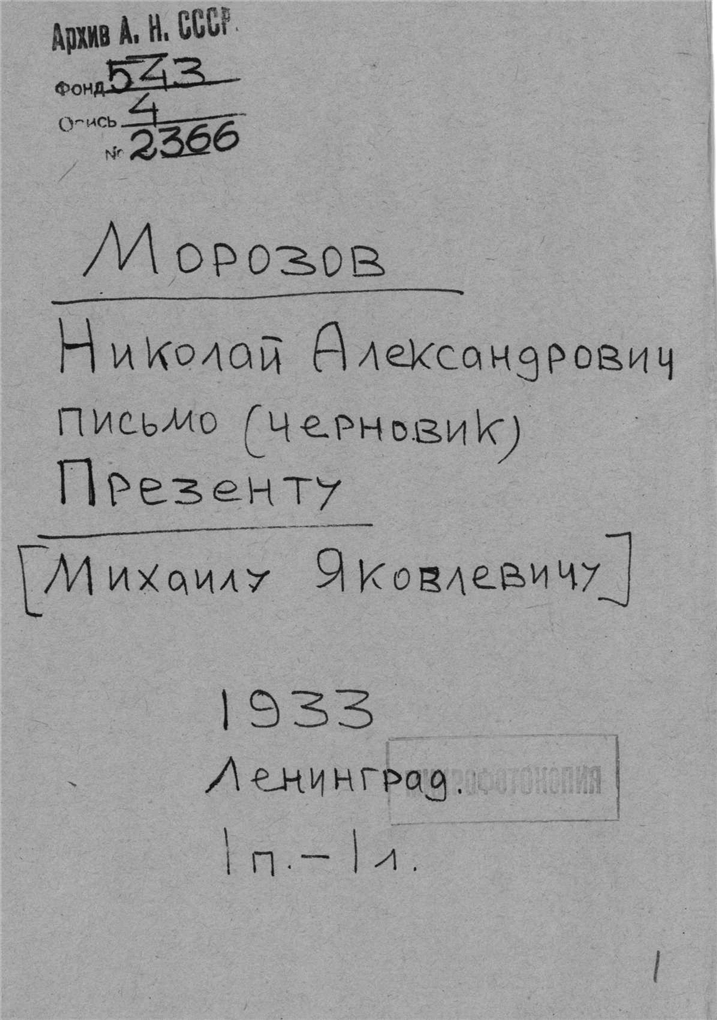 Архив А. Н. СССР.
Фонд 543
Опись 4
№ 2366
Морозов
Николай Александрович
письмо (черновик)
Презенту
[Михаилу Яковлевичу]
1933
Ленинград.
1 п. – 1 л.
1